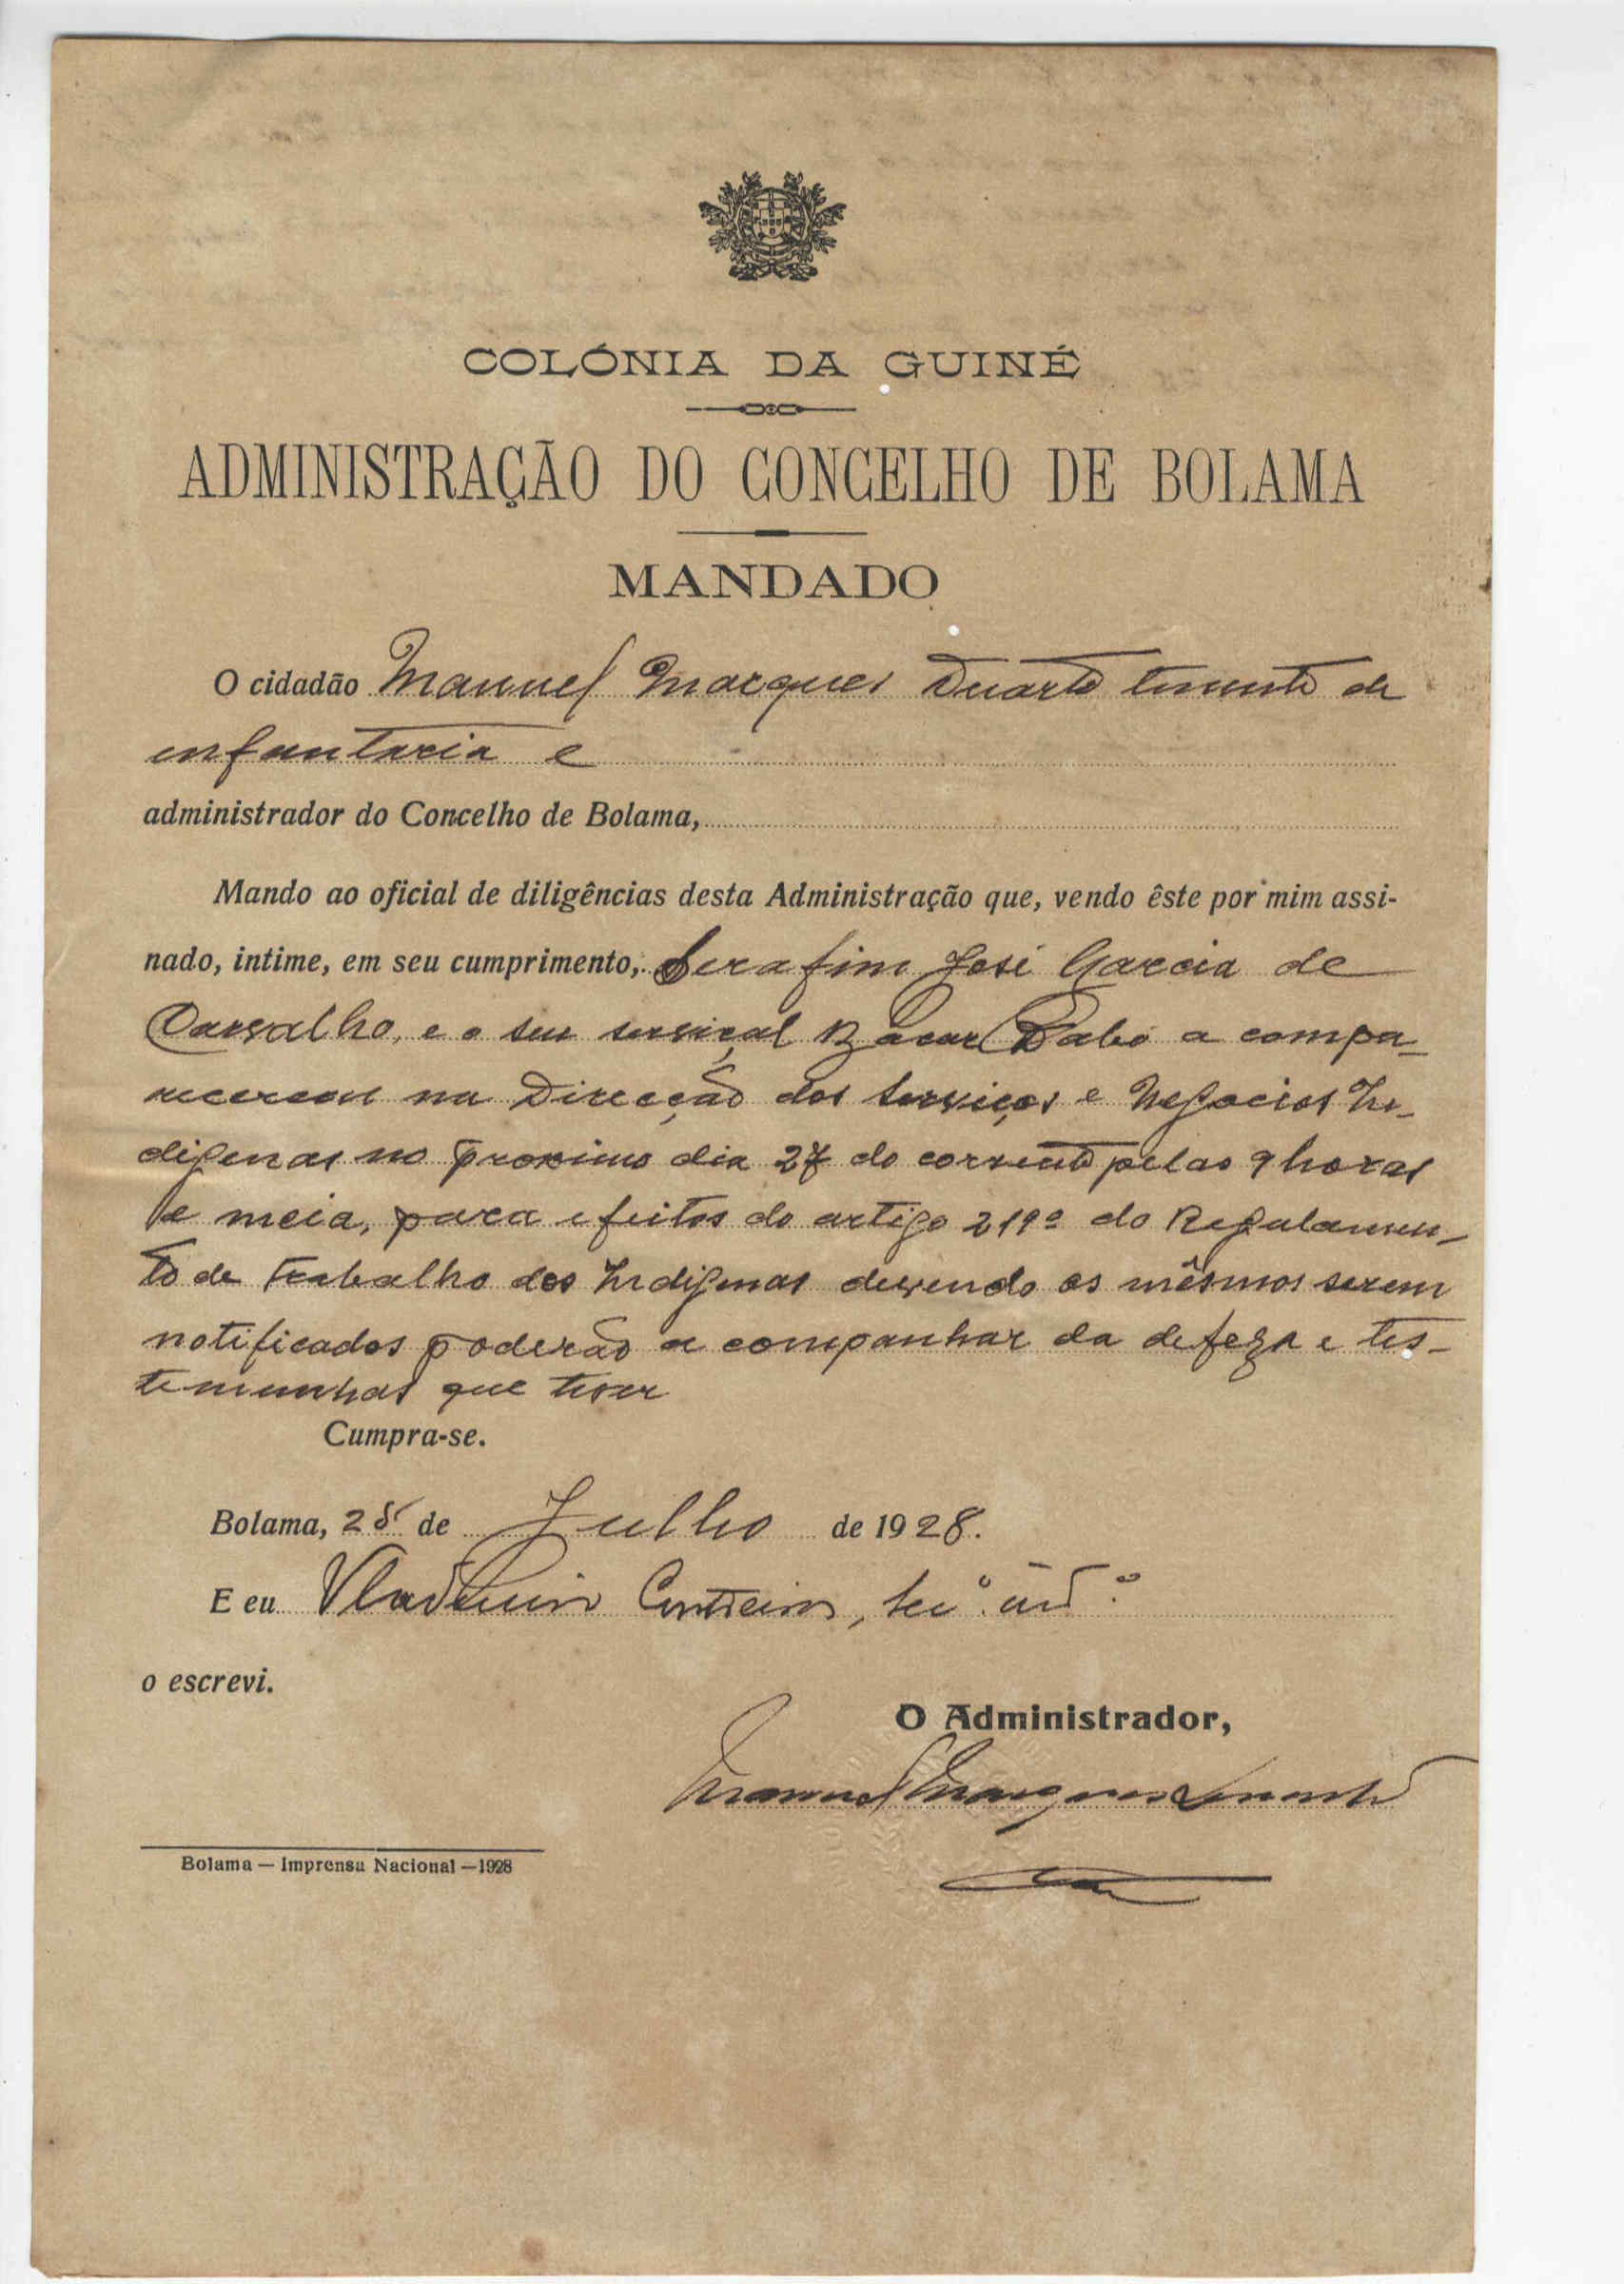 COLÓNIA DA GUINÉ
ADMINISTRAÇÃO DO CONCELHO DE BOLAMA
MANDADO
O cidadão Manuel Marques Duarte tenente de
infantaria e
administrador do Concelho de Bolama,
Mando ao oficial de diligências desta Administração que, vendo êste por mim assi-
nado, intime, em seu cumprimento, Serafim José Garcia de
Carvalho, e o seu serviçal Bácar Dabó a compa-
recerem na Direcção dos Serviços e Negocios In-
digenas no proximo dia 27 do corrente pelas 9 horas
e meia, para efeitos do artigo 219º do Regulamen-
to de Trabalho dos Indigenas devendo os mêsmos serem
notificados poderão acompanhar da defeza e tes-
temunhas que tiver
Cumpra-se.
Bolama, 25 de Julho de 1928.
E eu Vladimiro Contreiras,
o escrevi.
O Administrador,
Manuel Marques Duarte
Bolama — Imprensa Nacional — 1928